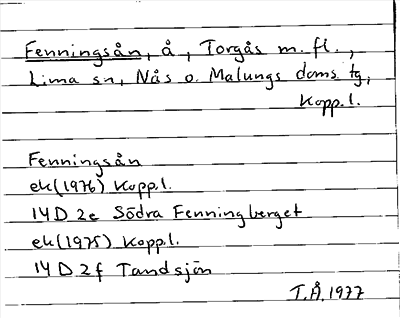 Fenningsån, å, Torgås m.fl.,
Lima sn, Nås o. Malungs doms. tg,
Kopp.l.
Fenningsån
ek(1976) Kopp.l.
14D 2e Södra Fenningberget
ek(1975) Kopp.l.
14D 2f Tandsjön
T.Å.1977